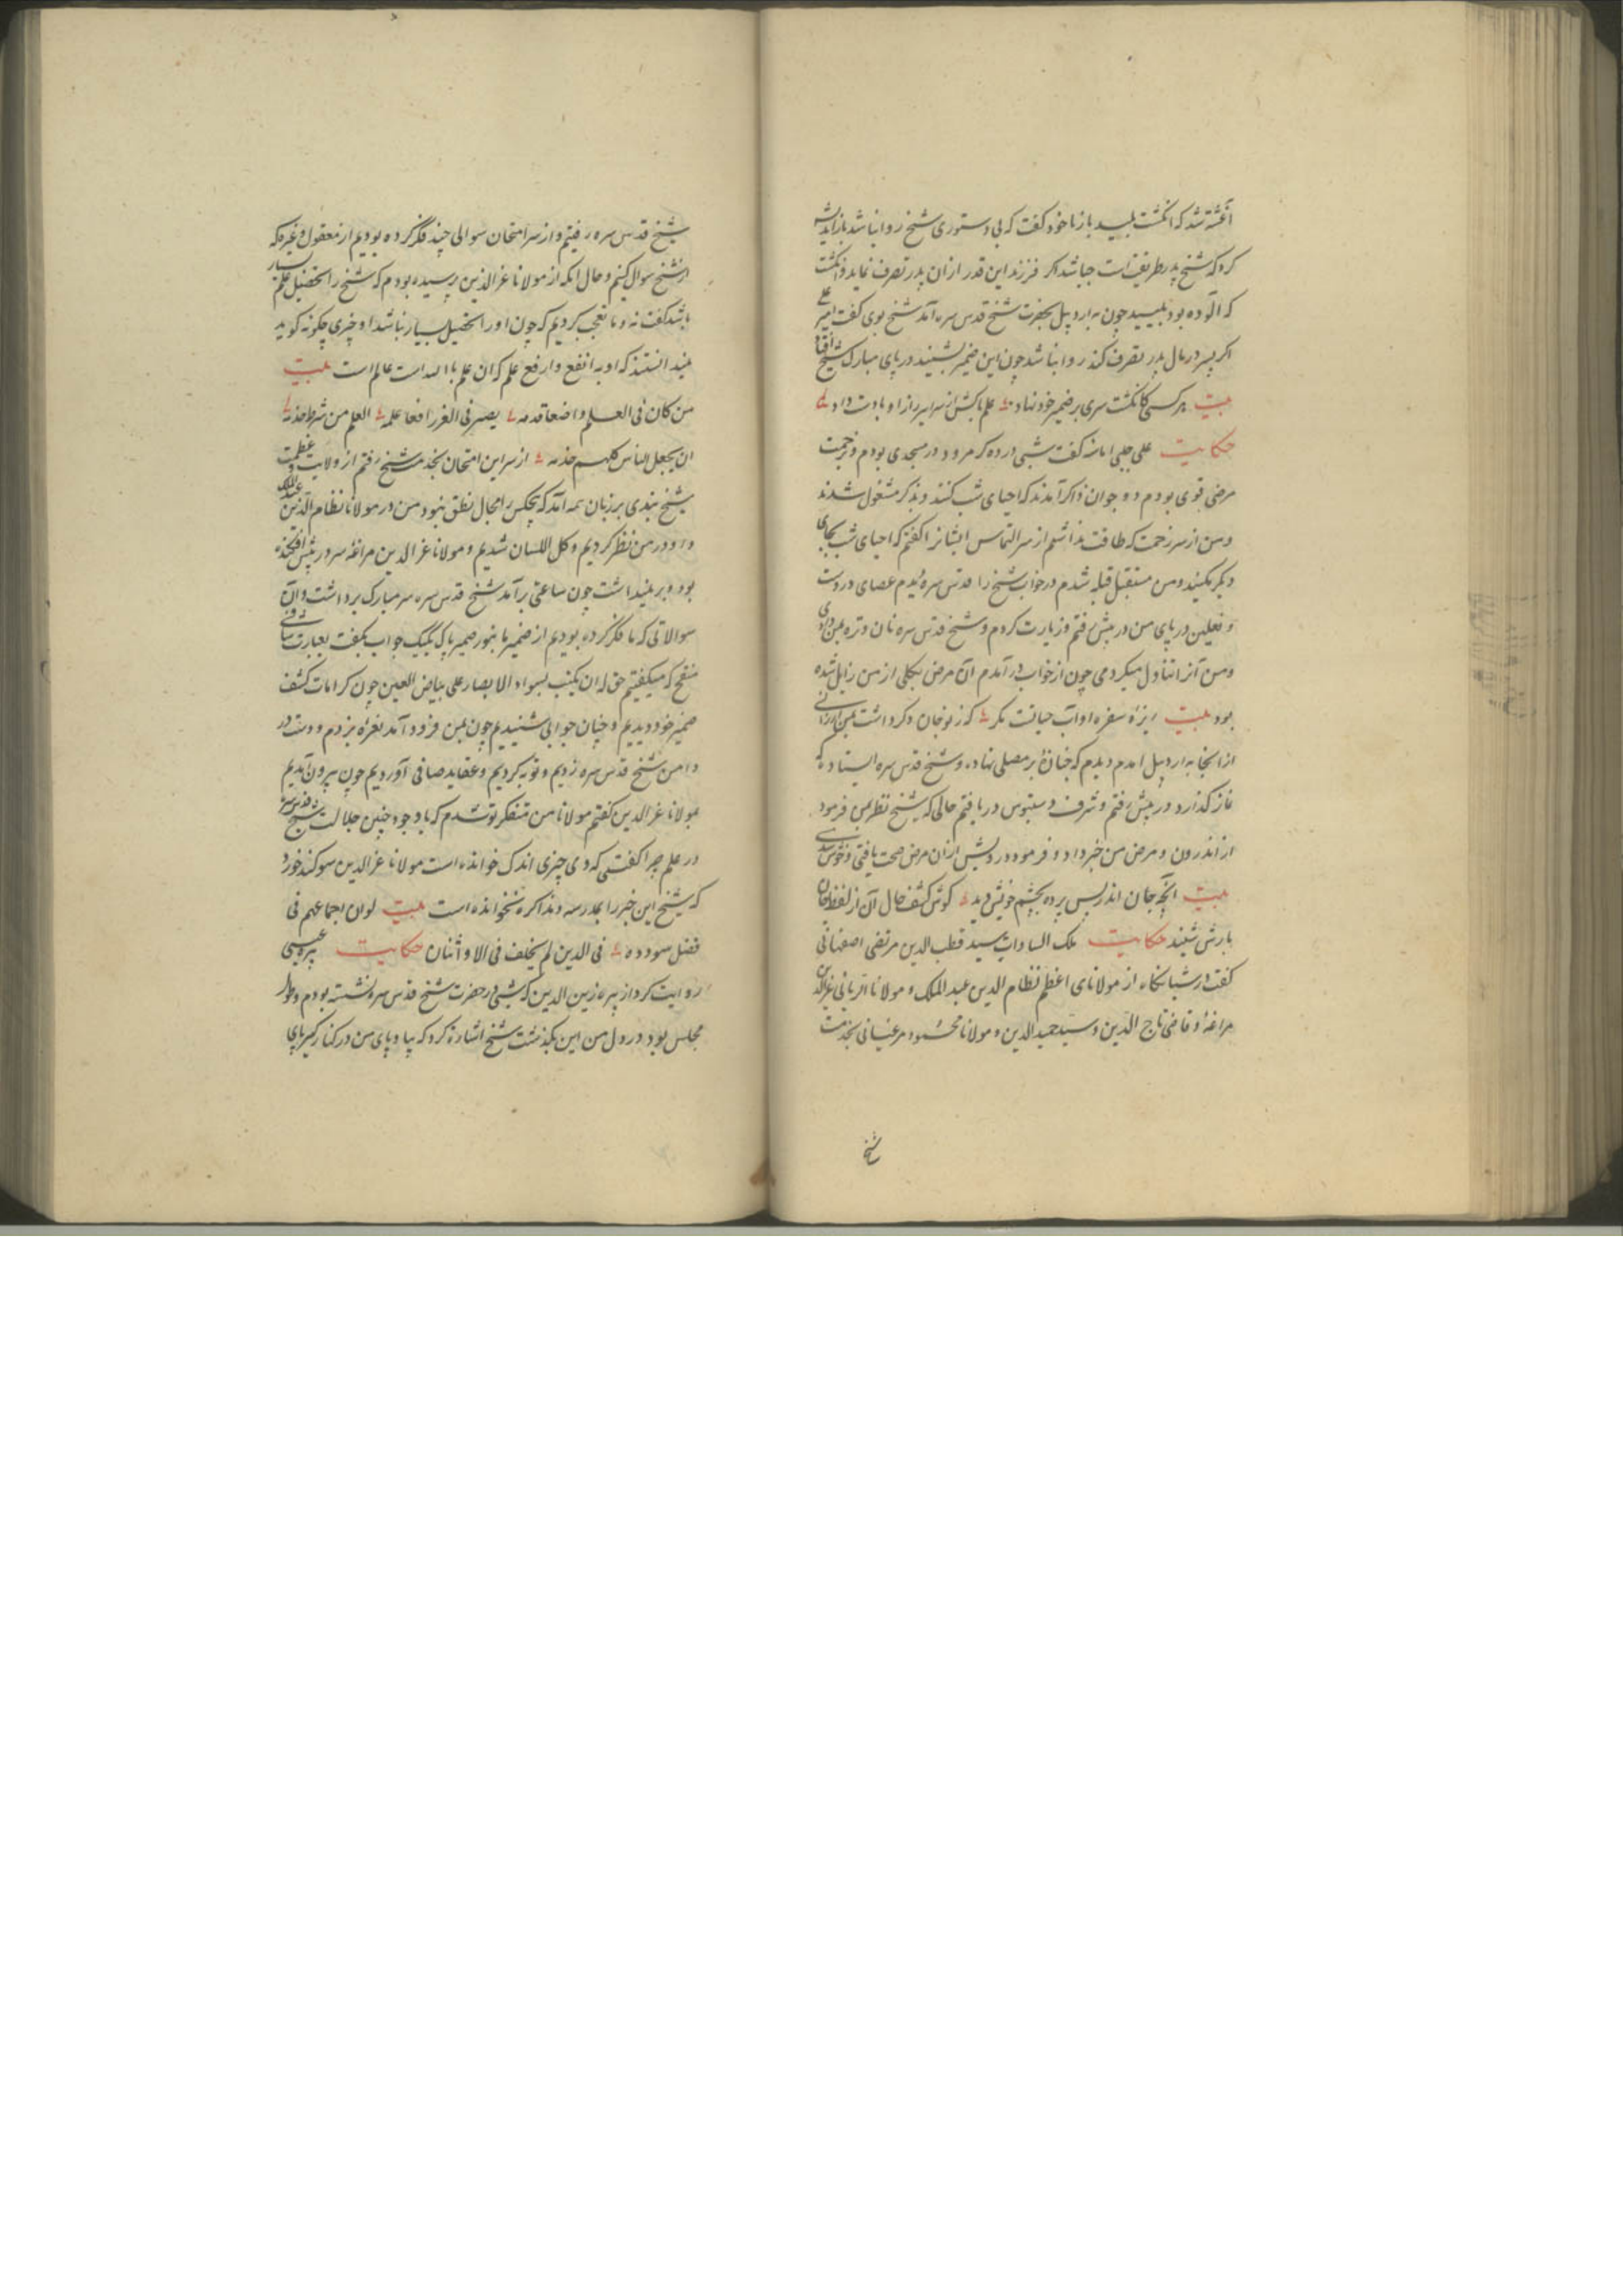 آغشته شد که انگشت بلیسد باز با خود گفت که بی دستوری شیخ روا نباشد باز اندیشه
کرد که شیخ پدر طریقت است چه باشد اگر فرزند این قدر از آن پدر تصرف نماید و انگشت
که آلوده بود بلیسید چون به اردبیل بحضرت شیخ قدس سره آمد شیخ بوی گفت امیر علی
اگر پسر در مال پدر تصرف کند روا باشد چون این ضمیر بشنید در پای مبارک شیخ افتاد
بیت هر کسی کانگشت سری بر ضمیر خود نهاد علم باکش از سرایر راز او با دست داد
حکایت علی جلی امانه گفت شبی در ده کرمرود در مسجدی بودم و زحمت
مرضی قوی بودم دو جوان ذاکر آمدند که احیای شب کنند و بذکر مشغول شدند
و من از سر زحمت که طاقت نداشتم از سر التماس ایشانرا گفتم که احیای شب بجای
دیگر بکنید و من مستقبل قبله شدم در خواب شیخ را قدس سره دیدم عصای در دست
و نعلین در پای من در پیش رفتم و زیارت کردم و شیخ قدس سره نان و تره بمن دادی
و من آنرا تناول میکردمی چون از خواب در آمدم آن مرض بکلی از من زایل شده
بود بیت ریزهٔ سفره او آب حیاتست مگر که ز نو جان دگر داشت بمن ارزانی
از آنجا به اردبیل آمدم دیدم که جنازهٔ بر مصلی نهاده و شیخ قدس سره ایستاده که
نماز گذارد در پیش رفتم و شرف دستبوس دریافتم حالی که شیخ نظر بمن فرمود
از اندرون و مرض من خبر داد و فرمود درویش از آن مرض صحت یافتی و خوش شدی
بیت آنچه جان اندر پس پرده بچشم خویش دید گوش کشف حال آن از لفظ جان
بارش شنید حکایت ملک السادات سید قطب الدین مرتضی اصفهانی
گفت در شبانگاه از مولانای اعظم نظام الدین عبد الملک و مولانا عز الدین
مراغهٔ و قاضی تاج الدین و سید حمید الدین و مولانا محمود مرغینانی بخدمت
شیخ
شیخ قدس سره رفتیم و از سر امتحان سوالی چند فکر کرده بودیم از معقول و غیره که
از شیخ سوال کنیم و حال آنکه از مولانا عز الدین پرسیده بودم که شیخ را تحصیل علم بسیار
باشد گفت نه و ما تعجب کردیم که چون او را تحصیل بسیار نباشد او چیزی چگونه گوید
نمیدانستند که او به انفع و ارفع علم که آن علم باالله است عالم است بیت
من کان فی العلم واضعا قدمه یصیر فی الغرر افعا علمه العلم من شرطه خدمه
ان یجعل الناس کلهم خدمه از سر این امتحان بخدمت شیخ رفتم از ولایت و عظمت
شیخ بندی بر زبان همه آمد که هیچکس را مجال نطق نبود من در مولانا نظام الدین عبد الملک
و او در من نظر کردیم و کل اللسان شدیم و مولانا عز الدین مراغهٔ سر در پیش افکنده
بود و بر نمیداشت چون ساعتی برآمد شیخ قدس سره سر مبارک برداشت و آن
سوالاتی که ما فکر کرده بودیم از ضمیر ما بنور ضمیر پاک یک یک جواب بگفت بعبارت شافی
منقح که میگفتیم حق له ان یکتب بسواد الابصار علی بیاض العین چون کرامات کشف
ضمیر خود دیدیم و چنان جوابی شنیدیم چون بمن فرود آمد نعرهٔ بزدم و دست در
دامن شیخ قدس سره زدیم و توبه کردیم و عقاید صافی آوردیم چون بیرون آمدیم
بمولانا عز الدین گفتم مولانا من متفکر تو شدم که با وجود چنین جلالت شیخ قدس سره
در علم چرا گفتی که وی چیزی اندک خوانده است مولانا عز الدین سوگند خورد
که شیخ این خبر را بمدرسه و مذاکره نخوانده است بیت لوان اجماعهم فی
فضل سودده فی الدین لم یخلف فی الاو اثنان حکایت پیره عیسی
روایت کرد از پیره زین الدین که شبی در حضرت شیخ قدس سره نشسته بودم و طول
مجلس بود در دل من این بگذشت شیخ اشارة کرد که بیا و پای من در کنار گیر پای